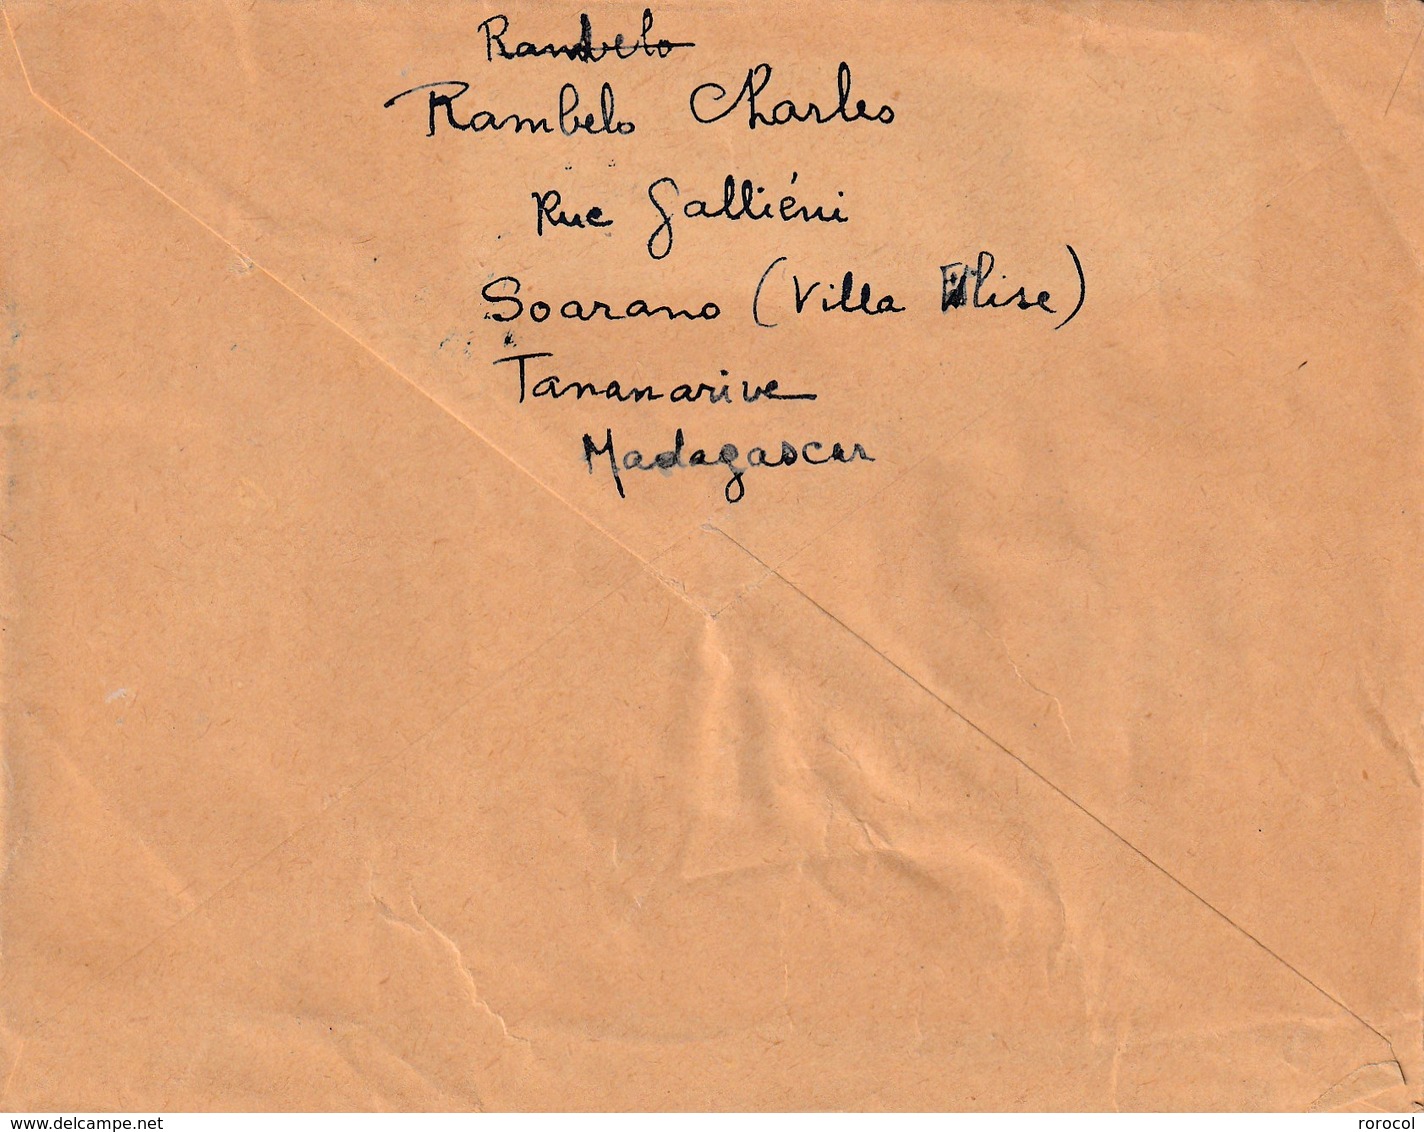 Rambelo
Rambelo Charles
Rue Galliéni
Soarano (Villa Elise)
Tananarive
Madagascar
www.delcampe.net
rorocol